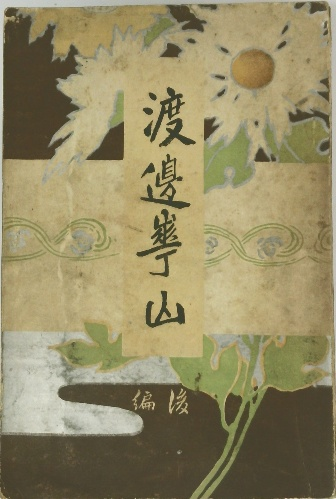 渡邊崋山
後編